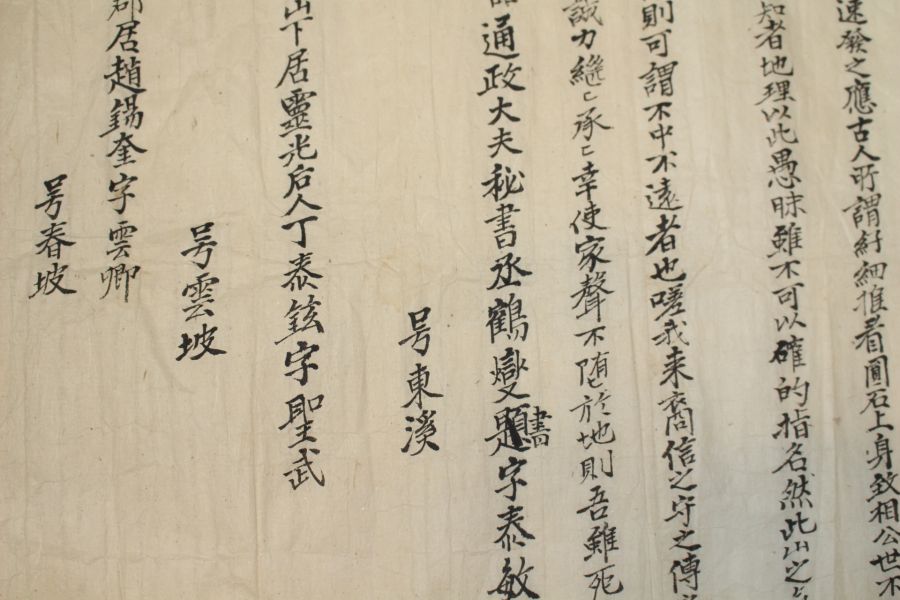 速發之應古人所謂紆細推看圓石上身致相公世不
知者地理以此愚昧雖不可以確的指名然此山之
則可謂不中不遠者也嗟我来裔信之守之傳
誠力繼〻承〻幸使家聲不墮於地則吾雖死
通政大夫秘書丞鶴燮題書字泰敏
号東溪
山下居靈光后人丁泰鉉字聖武
号雲坡
郡居趙錫奎字雲卿
号春坡